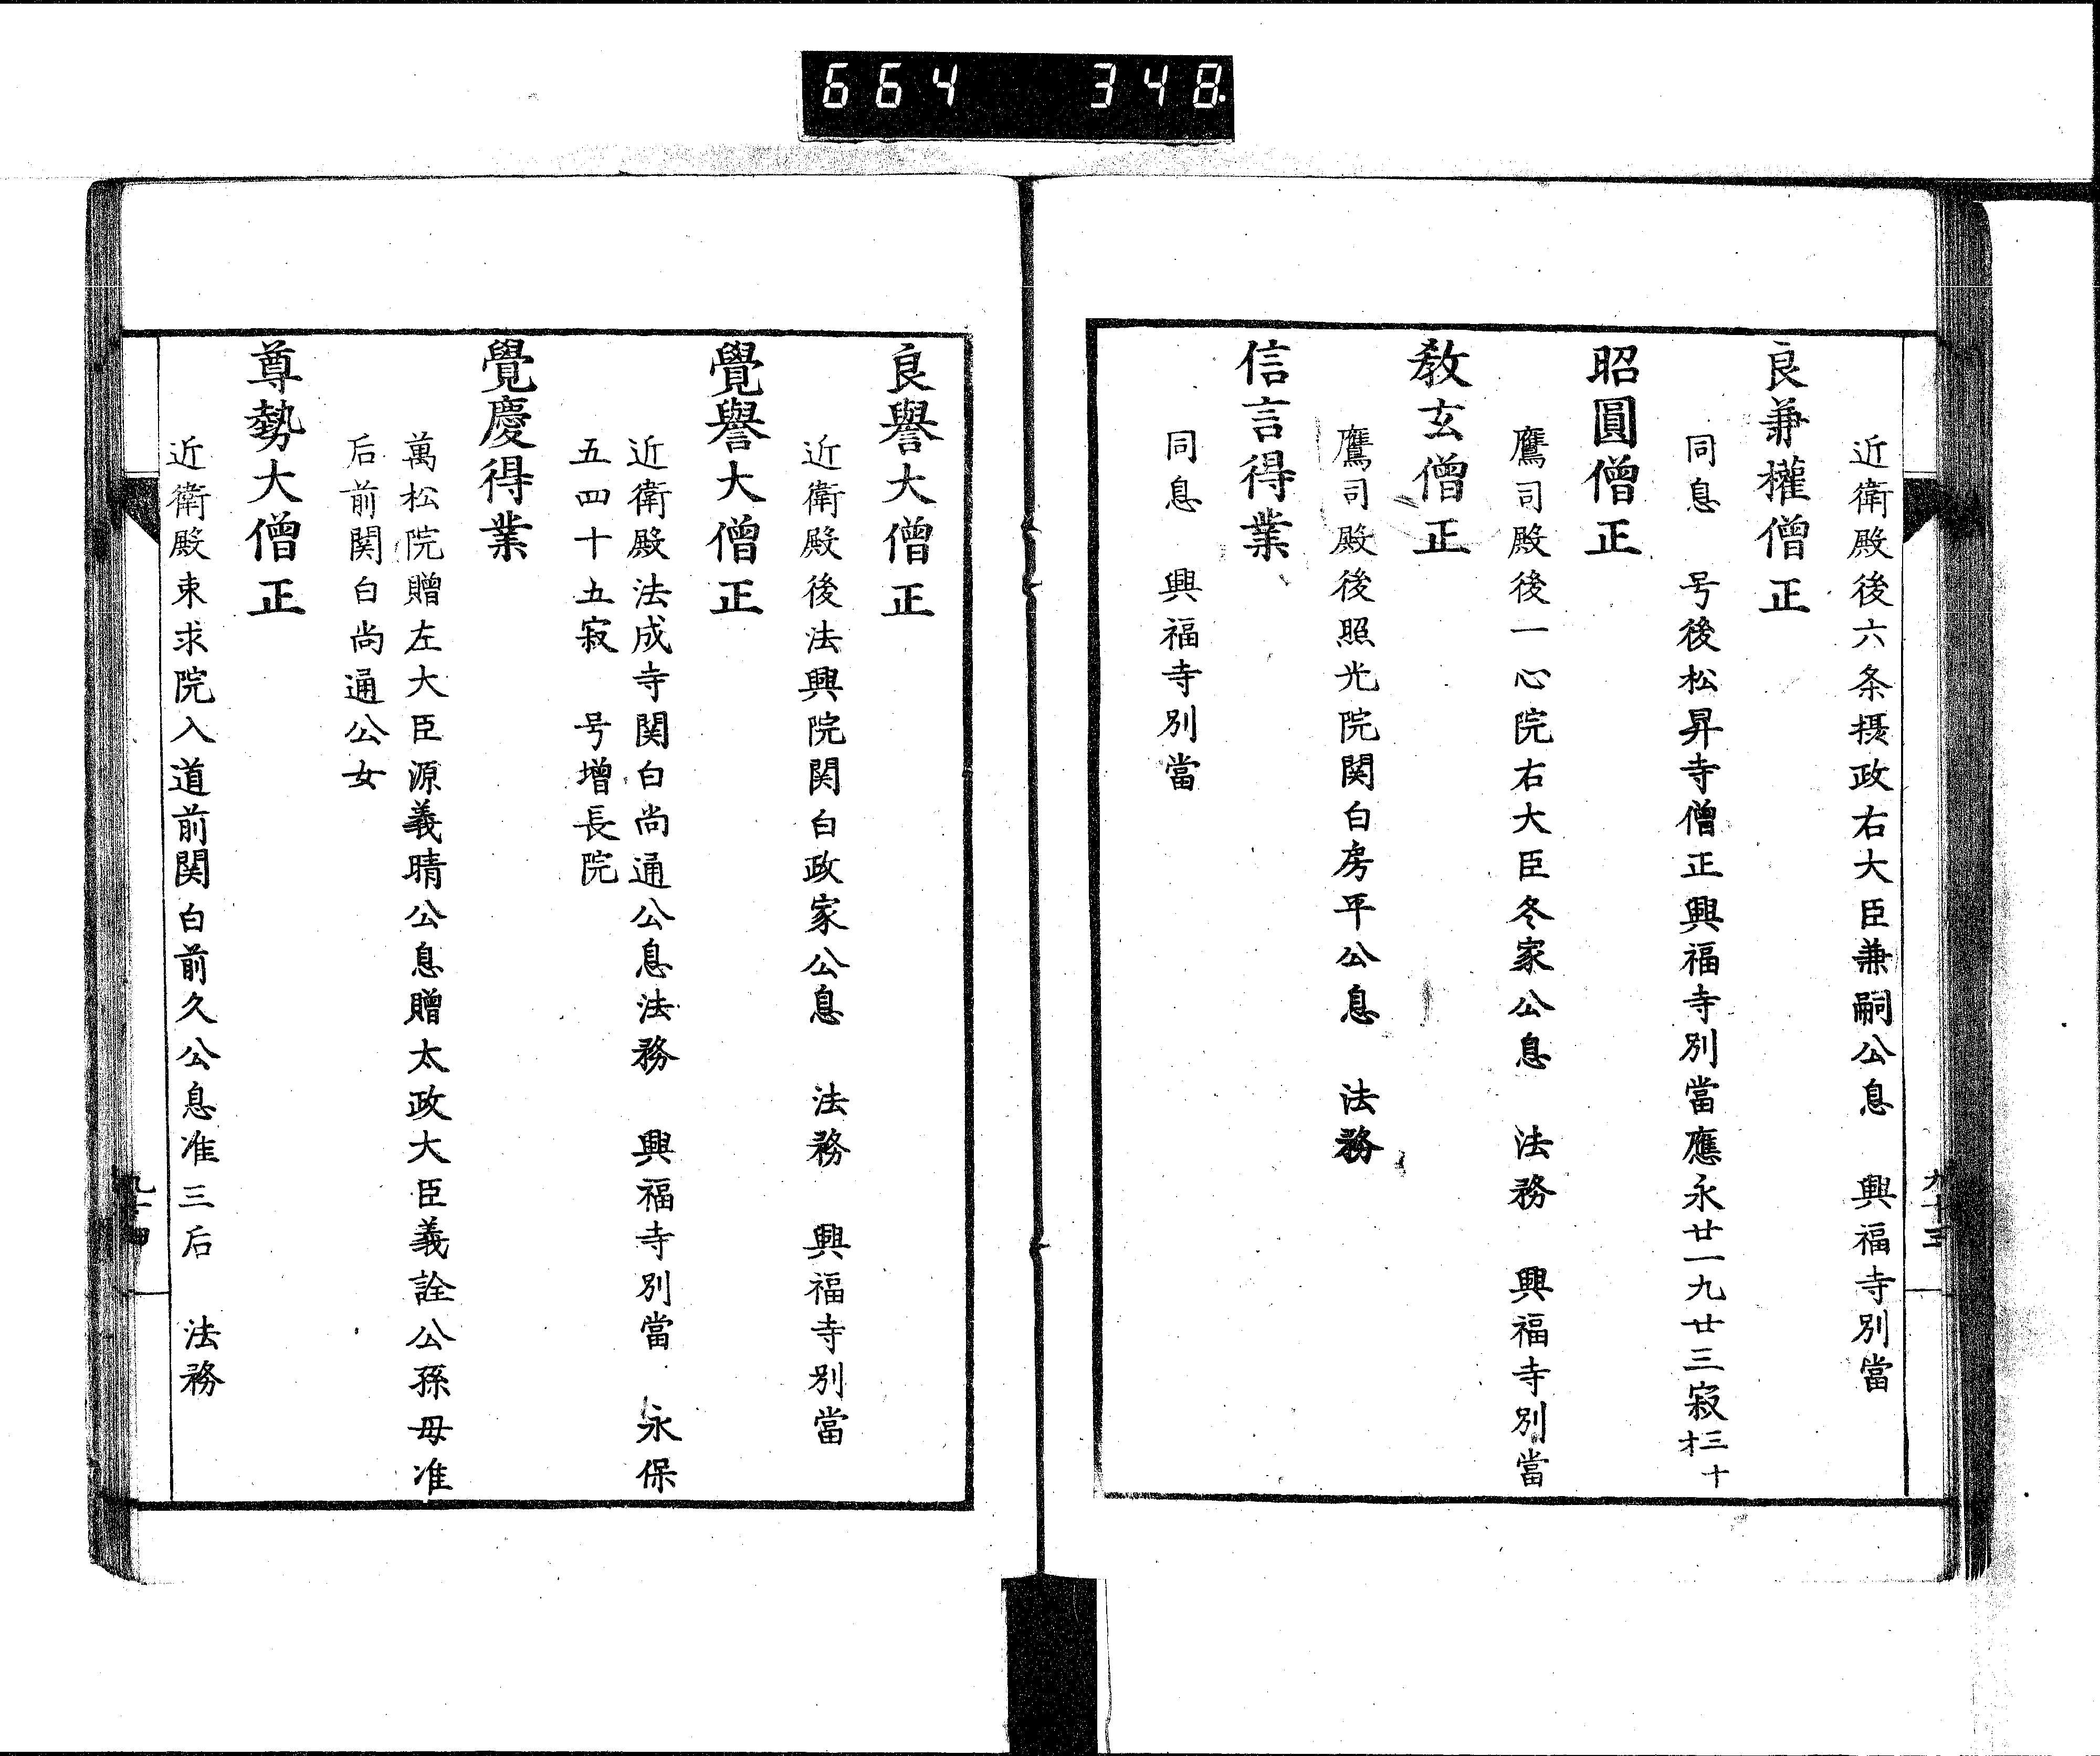 664 348.
近衛殿後六条摂政右大臣兼嗣公息　興福寺別當
良兼權僧正
同息　号後松昇寺僧正興福寺別當應永廿一九廿三寂三十才
昭圓僧正
鷹司殿後一心院右大臣冬家公息　法務　興福寺別當
教玄僧正
鷹司殿後照光院関白房平公息　法務
信言得業
同息　興福寺別當
九十三
良譽大僧正
近衛殿後法興院関白政家公息　法務　興福寺別當
覺譽大僧正
近衛殿法成寺関白尚通公息法務　興福寺別當　永保
五四十五寂　号増長院
覺慶得業
萬松院贈左大臣源義晴公息贈太政大臣義詮公孫母准
后前関白尚通公女
尊勢大僧正
近衛殿東求院入道前関白前久公息准三后　法務
九十四